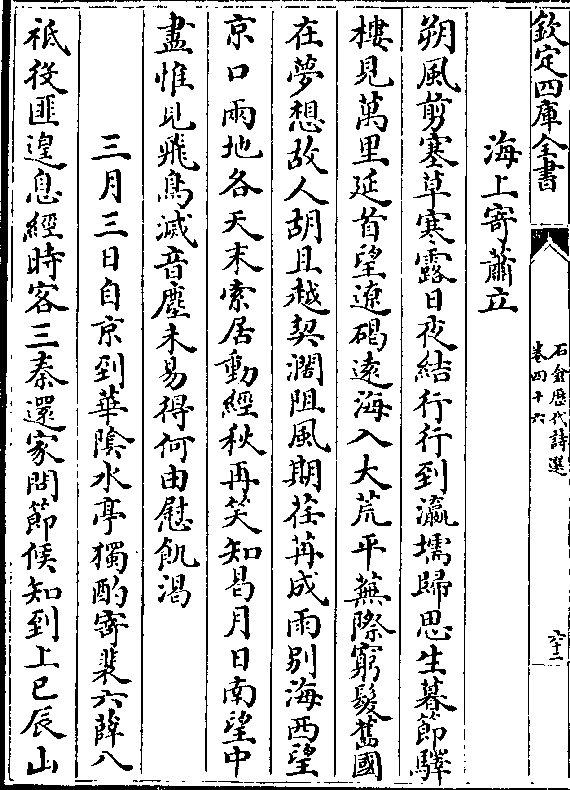 欽定四庫全書
石倉歷代詩選
卷四十六
六十二
海上寄蕭立
朔風剪塞草寒露日夜結行行到瀛壖歸思生暮節驛
樓見萬里延首望遼碣遠海入大荒平蕪際窮髮舊國
在夢想故人胡且越契濶阻風期荏苒成雨别海西望
京口兩地各天末索居動經秋再笑知曷月日南望中
盡惟見飛鳥滅音塵未易得何由慰飢渴
三月三日自京到華隂水亭獨酌寄裴六薛八
祗役匪遑息經時客三秦還家問節候知到上巳辰山